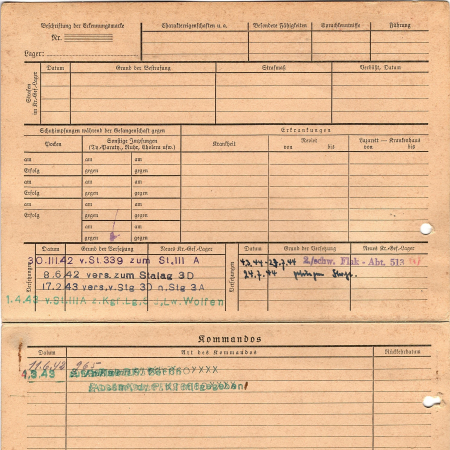 Beschriftung der Erkennungsmarke
Nr.
Lager:
Charaktereigenschaften u. a.
Besondere Fähigkeiten
Sprachkenntnisse
Führung
Strafen im Kr.-Gef.-Lager
Datum
Grund der Bestrafung
Strafmaß
Verbüßt, Datum
Schutzimpfungen während der Gefangenschaft gegen
Erkrankungen
Pocken
Sonstige Impfungen
(Ty.-Paraty., Ruhr, Cholera usw.)
Krankheit
Revier
von bis
Lazarett — Krankenhaus
von bis
am am am
Erfolg gegen gegen
am am am
Erfolg gegen gegen
am am am
Erfolg gegen gegen
am am am
gegen gegen
am am
gegen gegen
Versetzungen
Datum Grund der Versetzung Neues Kr.-Gef.-Lager
30.III.42 v.St.339 zum St.III A
8.6.42 vers.zum Stalag 3D
17.2.43 vers.v.Stg 3D n.Stg 3A
1.4.43 v.St.IIIA z.Kgf.Lg. d.Lw.Wolfen
Versetzungen
Datum Grund der Versetzung Neues Kr.-Gef.-Lager
2./schw. Flak - Abt. 513
24.7.44
Kommandos
Datum Art des Kommandos Rückkehrdatum
11.6.42 965
4.3.43